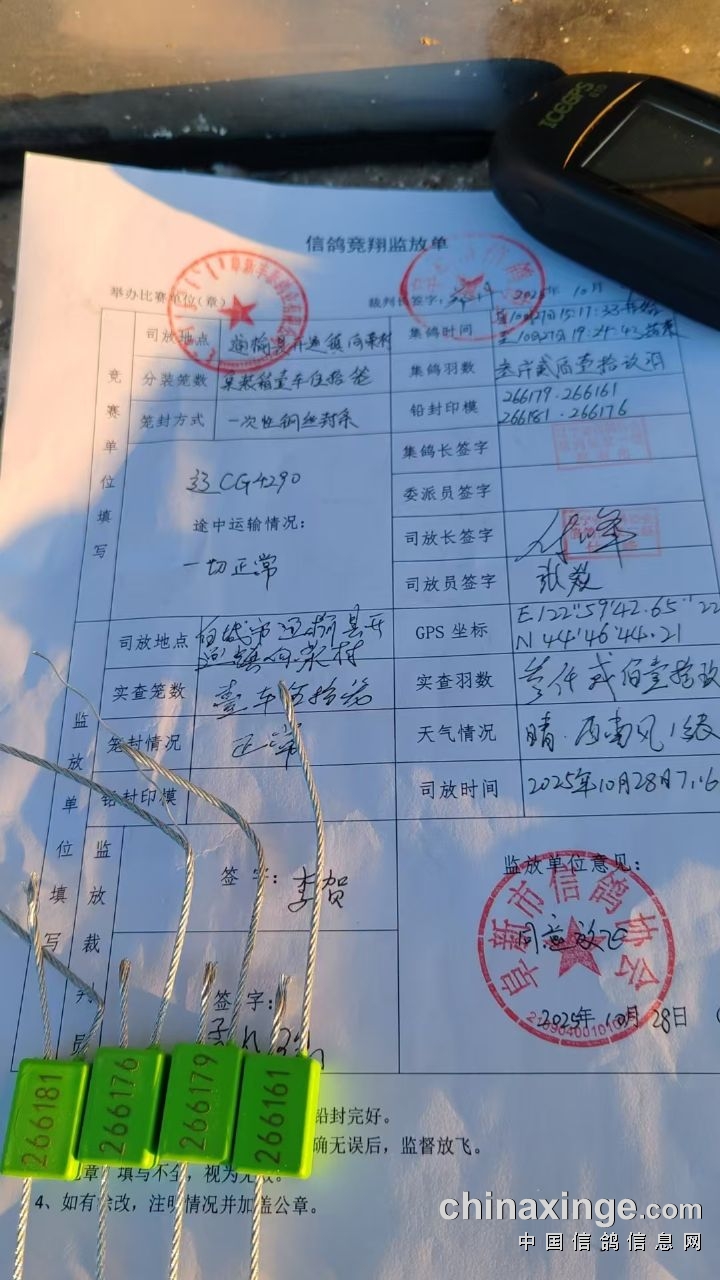 IGEGPS
信鸽竞翔监放单
举办比赛单位(章)
裁判长签字:
2025年 10月
竞赛单位填写
司放地点
集鸽时间
10月27日15:17:33开始
至10月27日19:24:43结束
分装笼数
集鸽羽数
叁仟贰佰壹拾玖羽
笼封方式
一次性钢丝封条
铅封印模
266179.266161
266181.266176
辽CG4290
途中运输情况:
一切正常
集鸽长签字
委派员签字
司放长签字
司放员签字
监放单位填写
司放地点
白城市通榆县开
通镇向荣村
GPS 坐标
E122°59'42.65"
N 44°46'44.21
实查笼数
实查羽数
叁仟贰佰壹拾玖
笼封情况
正常
天气情况
晴.西南风1级
铅封印模
司放时间
2025年10月28日7:16
监放裁判员
签字:李贺
签字:
监放单位意见:
同意放飞
阜新市信鸽协会
2025年 10月 28日
266181
266176
266179
266161
铅封完好。
确无误后，监督放飞。
填写不全，视为无效。
4、如有涂改，注明情况并加盖公章。
chinaxinge.com
中国信鸽信息网